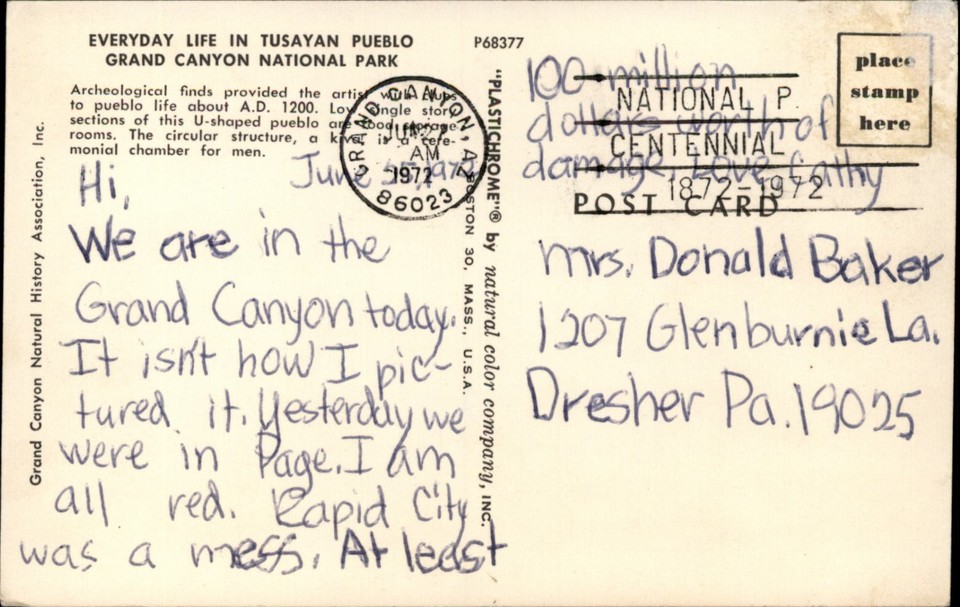 EVERYDAY LIFE IN TUSAYAN PUEBLO
GRAND CANYON NATIONAL PARK
P68377
Archeological finds provided the artist with clues
to pueblo life about A.D. 1200. Low single story
sections of this U-shaped pueblo are food storage
rooms. The circular structure, a kiva, is a cere-
monial chamber for men.
Grand Canyon Natural History Association, Inc.
June 25, 1972
Hi,
We are in the
Grand Canyon today.
It isn't how I pic-
tured it. Yesterday we
were in Page. I am
all red. Rapid City
was a mess. At least
100 million
dollars worth of
damage. Love Cathy
GRAND CANYON, AZ
JUN
AM
1972
86023
"PLASTICHROME"® by natural color company, INC.
BOSTON 30, MASS., U.S.A.
NATIONAL P.
CENTENNIAL
1872-1972
POST CARD
place
stamp
here
Mrs. Donald Baker
1207 Glenburnie La.
Dresher Pa. 19025